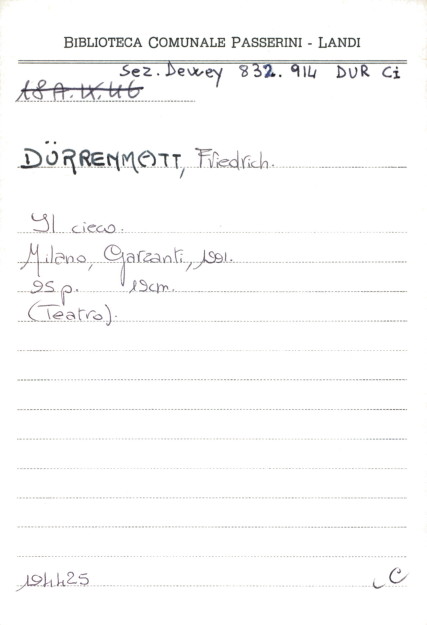 BIBLIOTECA COMUNALE PASSERINI - LANDI
Sez. Dewey 832.914 DUR Ci
18A.IX.46
DÜRRENMATT, Friedrich.
Il cieco.
Milano, Garzanti, 1991.
95 p. 19cm.
(Teatro).
194425 C